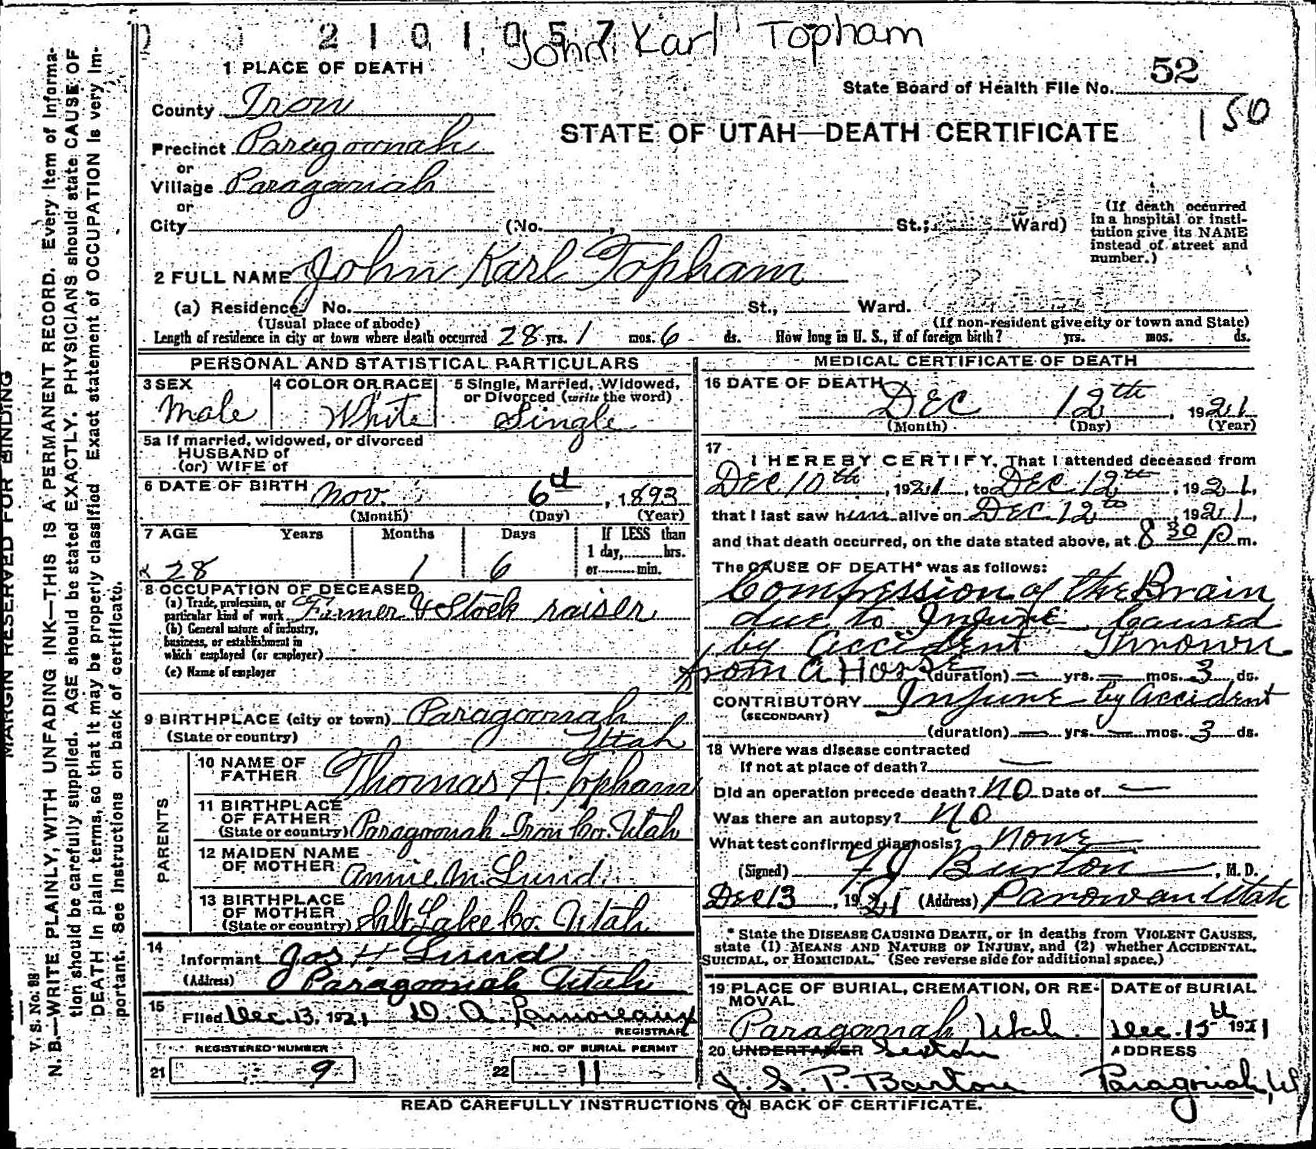 2 1 0 1 0 5 7
John Karl Topham
1 PLACE OF DEATH
State Board of Health File No. 52
150
County Iron
STATE OF UTAH—DEATH CERTIFICATE
Precinct Paragoonah
or
Village Paragoonah
or
City (No. , St.; Ward)
(If death occurred
in a hospital or insti-
tution give its NAME
instead of street and
number.)
2 FULL NAME John Karl Topham
(a) Residence No. St., Ward.
(Usual place of abode) (If non-resident give city or town and State)
Length of residence in city or town where death occurred 28 yrs. 1 mos. 6 ds. How long in U. S., if of foreign birth? yrs. mos. ds.
PERSONAL AND STATISTICAL PARTICULARS
3 SEX 4 COLOR OR RACE 5 Single, Married, Widowed,
or Divorced (write the word)
Male White Single
5a If married, widowed, or divorced
HUSBAND of
(or) WIFE of
6 DATE OF BIRTH Nov. 6th, 1893
(Month) (Day) (Year)
7 AGE Years Months Days If LESS than
1 day, hrs.
or min.
28 1 6
8 OCCUPATION OF DECEASED
(a) Trade, profession, or
particular kind of work Farmer & Stock raiser
(b) General nature of industry,
business, or establishment in
which employed (or employer)
(c) Name of employer
9 BIRTHPLACE (city or town) Paragoonah
(State or country) Utah
PARENTS
10 NAME OF
FATHER Thomas A Topham
11 BIRTHPLACE
OF FATHER
(State or country) Paragoonah Iron Co. Utah
12 MAIDEN NAME
OF MOTHER Annie M Lund
13 BIRTHPLACE
OF MOTHER
(State or country) Salt Lake Co. Utah
14
Informant Jos H Lund
(Address) Paragoonah Utah
15
Filed Dec. 13, 1921 D. A. Lamoreaux
REGISTRAR
REGISTERED NUMBER NO. OF BURIAL PERMIT
21 9 22 11
MEDICAL CERTIFICATE OF DEATH
16 DATE OF DEATH
Dec 12th, 1921
(Month) (Day) (Year)
17
I HEREBY CERTIFY, That I attended deceased from
Dec 10th, 1921, to Dec 12th, 1921,
that I last saw him alive on Dec 12th, 1921,
and that death occurred, on the date stated above, at 8 30 P m.
The CAUSE OF DEATH* was as follows:
Compression of the Brain
due to Injurie Caused
by accident Thrown
from a Horse (duration) — yrs. — mos. 3 ds.
CONTRIBUTORY Injurie by accident
(SECONDARY)
(duration) — yrs. — mos. 3 ds.
18 Where was disease contracted
If not at place of death? —
Did an operation precede death? NO Date of —
Was there an autopsy? NO
What test confirmed diagnosis? None
(Signed) Burton, M. D.
Dec 13, 1921 (Address) Parowan Utah
* State the DISEASE CAUSING DEATH, or in deaths from VIOLENT CAUSES,
state (1) MEANS AND NATURE OF INJURY, and (2) whether ACCIDENTAL,
SUICIDAL, or HOMICIDAL. (See reverse side for additional space.)
19 PLACE OF BURIAL, CREMATION, OR RE-
MOVAL DATE of BURIAL
Paragoonah Utah Dec. 15th 1921
20 UNDERTAKER Sexton ADDRESS
J. S. P. Barton Paragonah, U
READ CAREFULLY INSTRUCTIONS ON BACK OF CERTIFICATE.
MARGIN RESERVED FOR BINDING
V. S. No. 88
N. B.—WRITE PLAINLY, WITH UNFADING INK—THIS IS A PERMANENT RECORD. Every item of informa-
tion should be carefully supplied. AGE should be stated EXACTLY. PHYSICIANS should state CAUSE OF
DEATH in plain terms, so that it may be properly classified. Exact statement of OCCUPATION is very im-
portant. See instructions on back of certificate.